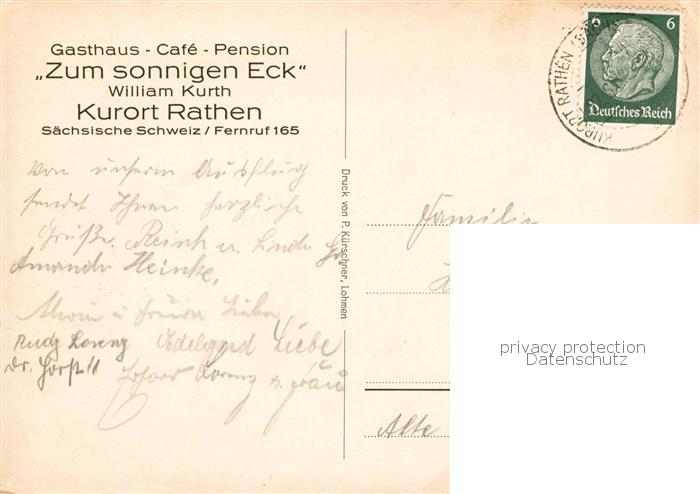 Gasthaus - Café - Pension
„Zum sonnigen Eck"
William Kurth
Kurort Rathen
Sächsische Schweiz / Fernruf 165
Von unserm Ausflug
sendet Ihnen herzliche
Grüße. u.
Amanda Heinke,
u
Rudg Lorenz Edelgard Liebe
Dr. Horst
Lorenz u. Frau
Druck von P. Kürschner, Lohmen
6 6
Deutsches Reich
KURORT RATHEN
Familie
Alte
privacy protection
Datenschutz